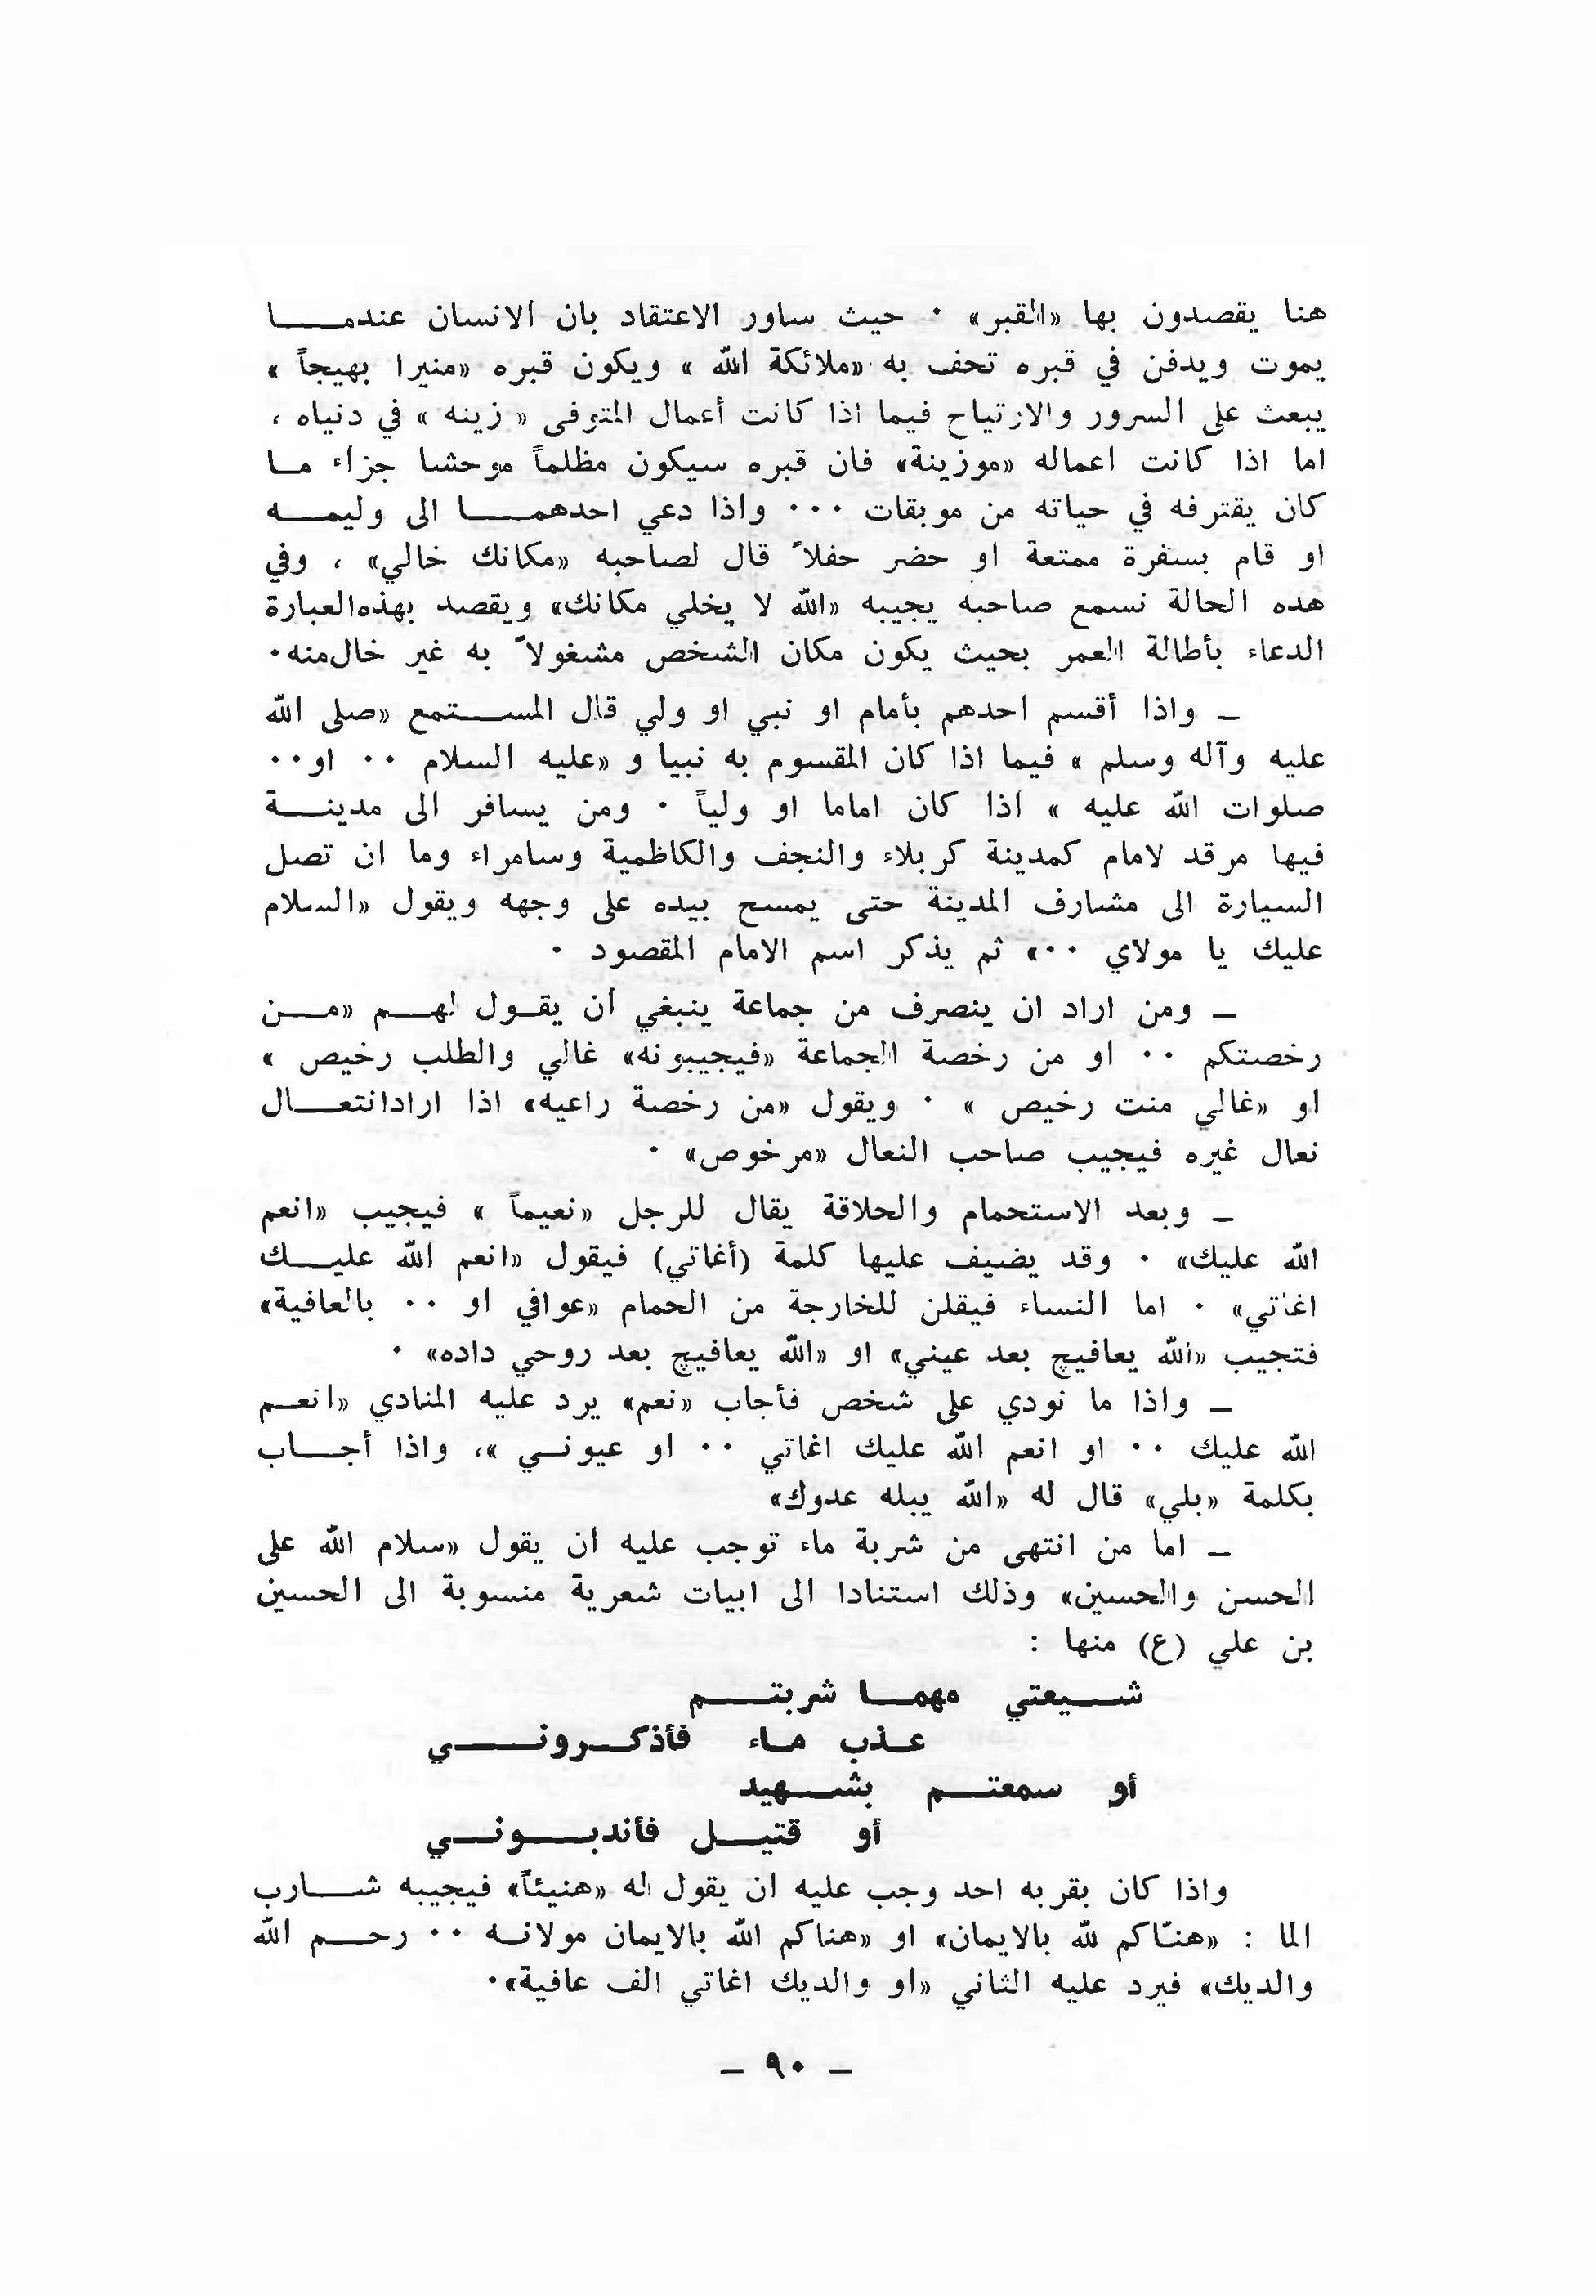 هنا يقصدون بها «القبر» ٠ حيث ساور الاعتقاد بان الانسان عندمـــا
يموت ويدفن في قبره تحف به «ملائكة الله » ويكون قبره «منيرا بهيجاً »
يبعث على السرور والارتياح فيما اذا كانت أعمال المتوفى « زينه » في دنياه ،
اما اذا كانت اعماله «موزينة» فان قبره سيكون مظلماً موحشا جزاء مـا
كان يقترفه في حياته من موبقات ٠٠٠ واذا دعي احدهمـــا الى وليمـــه
او قام بسفرة ممتعة او حضر حفلاً قال لصاحبه «مكانك خالي» ، وفي
هده الحالة نسمع صاحبه يجيبه «الله لا يخلي مكانك» ويقصد بهذهالعبارة
الدعاء بأطالة العمر بحيث يكون مكان الشخص مشغولاً به غير خال‌منه٠
ــ واذا أقسم احدهم بأمام او نبي او ولي قال المســـتمع «صلى الله
عليه وآله وسلم » فيما اذا كان المقسوم به نبيا و «عليه السلام ٠٠ او٠٠
صلوات الله عليه » اذا كان اماما او ولياً ٠ ومن يسافر الى مدينـــة
فيها مرقد لامام كمدينة كربلاء والنجف والكاظمية وسامراء وما ان تصل
السيارة الى مشارف المدينة حتى يمسح بيده على وجهه ويقول «السلام
عليك يا مولاي ٠٠» ثم يذكر اسم الامام المقصود ٠
ــ ومن اراد ان ينصرف من جماعة ينبغي أن يقـول لهـــم «مـــن
رخصتكم ٠٠ او من رخصة الجماعة «فيجيبونه» غالي والطلب رخيص »
او «غالي منت رخيص » ٠ ويقول «من رخصة راعيه» اذا ارادانتعـــال
نعال غيره فيجيب صاحب النعال «مرخوص» ٠
ــ وبعد الاستحمام والحلاقة يقال للرجل «نعيماً » فيجيب «انعم
الله عليك» ٠ وقد يضيف عليها كلمة (أغاتي) فيقول «انعم الله عليـــك
اغاتي» ٠ اما النساء فيقلن للخارجة من الحمام «عوافي او ٠٠ بالعافية»
فتجيب «الله يعافيچ بعد عيني» او «الله يعافيچ بعد روحي داده» ٠
ــ واذا ما نودي على شخص فأجاب «نعم» يرد عليه المنادي «انعـم
الله عليك ٠٠ او انعم الله عليك اغاتي ٠٠ او عيونـي »، واذا أجـــاب
بكلمة «بلي» قال له «الله يبله عدوك»
ــ اما من انتهى من شربة ماء توجب عليه ان يقول «سلام الله على
الحسن والحسين» وذلك استنادا الى ابيات شعرية منسوبة الى الحسين
بن علي (ع) منها :
شـــيعتي مهمـــا شربتـــم
عـذب مـاء فأذكـــرونـــي
أو سمعتـــم بشـــهيد
أو قتيـــل فأندبـــونـــي
واذا كان بقربه احد وجب عليه ان يقول له «هنيئاً» فيجيبه شـــارب
الما : «هنّاكم لله بالايمان» او «هناكم الله بالايمان مولانـه ٠٠ رحـــم الله
والديك» فيرد عليه الثاني «او والديك اغاتي الف عافية»٠
ــ ٩٠ ــ